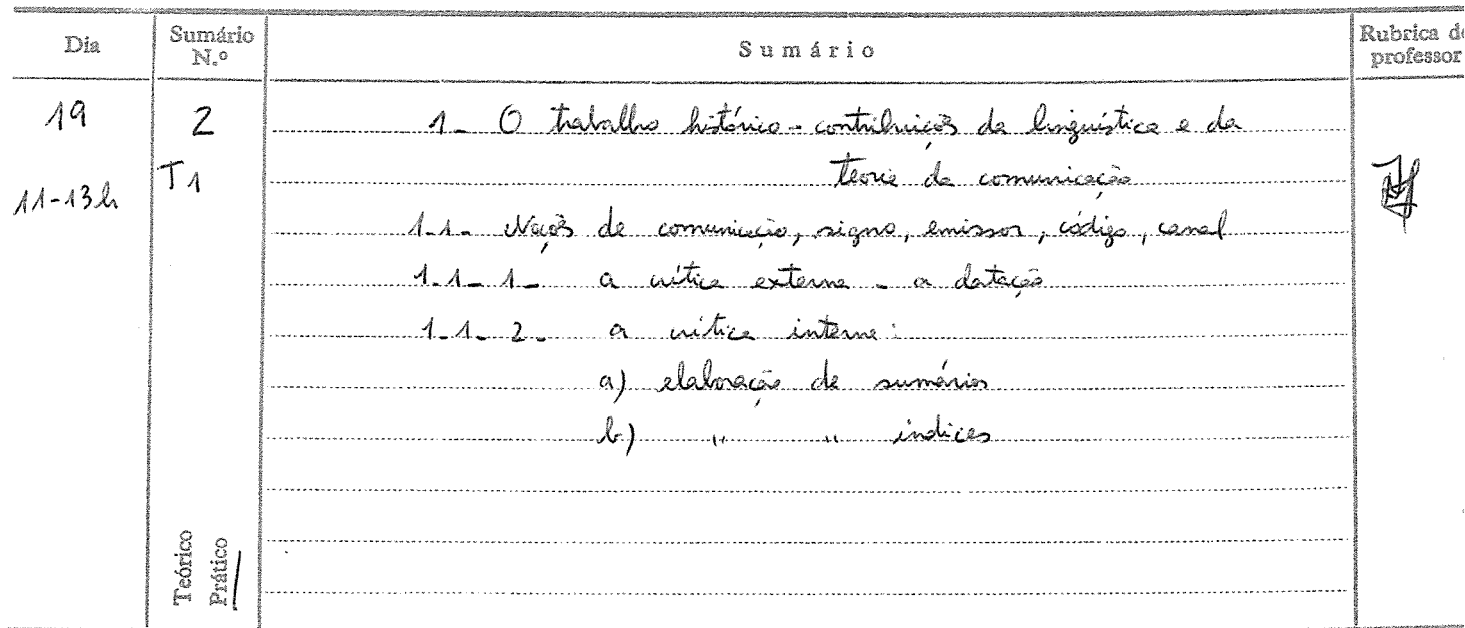 Dia
Sumário
N.º
Sumário
Rubrica do
professor
19
2
1- O trabalho histórico - contribuições da linguística e da
teoria da comunicação
T1
11-13h
1-1- Noções de comunicação, signo, emissor, código, canal
1-1-1- a crítica externa - a datação
1-1-2- a crítica interna:
a) elaboração de sumários
b) " " índices
Teórico
Prático